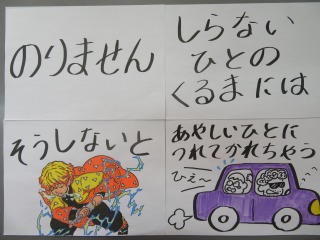 のりません
しらない
ひとの
くるまには
そうしないと
あやしいひとに
つれてかれちゃう
ひぇ〜